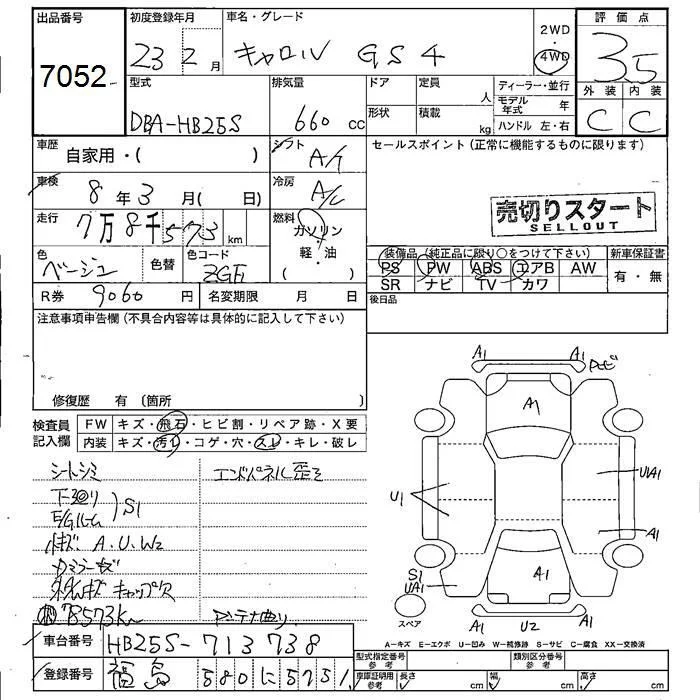 出品番号 初度登録年月 車名・グレード 2WD 評価点
7052 23 2月 キャロル GS4 ・4WD 3.5
外装 内装
型式 排気量 ドア 定員 人 ディーラー・並行
DBA-HB25S 660 cc 形状 積載 kg モデル年式 年 C C
ハンドル 左・右
車歴 自家用・( ) シフト A/T セールスポイント(正常に機能するものに限ります)
車検 8年3月( 日) 冷房 A/C
売切りスタート
SELLOUT
走行 7万8千573km 燃料 ガソリン
軽・油
( )
色 ベージュ 色替 色コード ZGE 装備品(純正品に限り○をつけて下さい) 新車保証書
PS PW ABS エアB AW 有・無
SR ナビ TV カワ
R券 9060円 名変期限 月 日 後日品
注意事項申告欄(不具合内容等は具体的に記入して下さい)
修復歴 有(箇所 )
A1 A1
A1
検査員記入欄 FW キズ・飛石・ヒビ割・リペア跡・X要
内装 キズ・汚レ・コゲ・穴・スレ・キレ・破レ
シートシミ エンドパネル歪ミ
下廻り S1
E/Gルーム
U1 U1A1
A.U.W2 A1
S1
UA1 A1
キャップ欠
78573km アンテナ曲り
スペア A1 U2 A1
A-キズ E-エクボ U-凹み W-補修跡 S-サビ C-腐食 XX-交換済
車台番号 HB25S-713738
型式指定番号 参考 類別区分番号 参考
登録番号 福島 580に5751 車庫証明用 参考 長さ cm 幅 cm 高さ cm